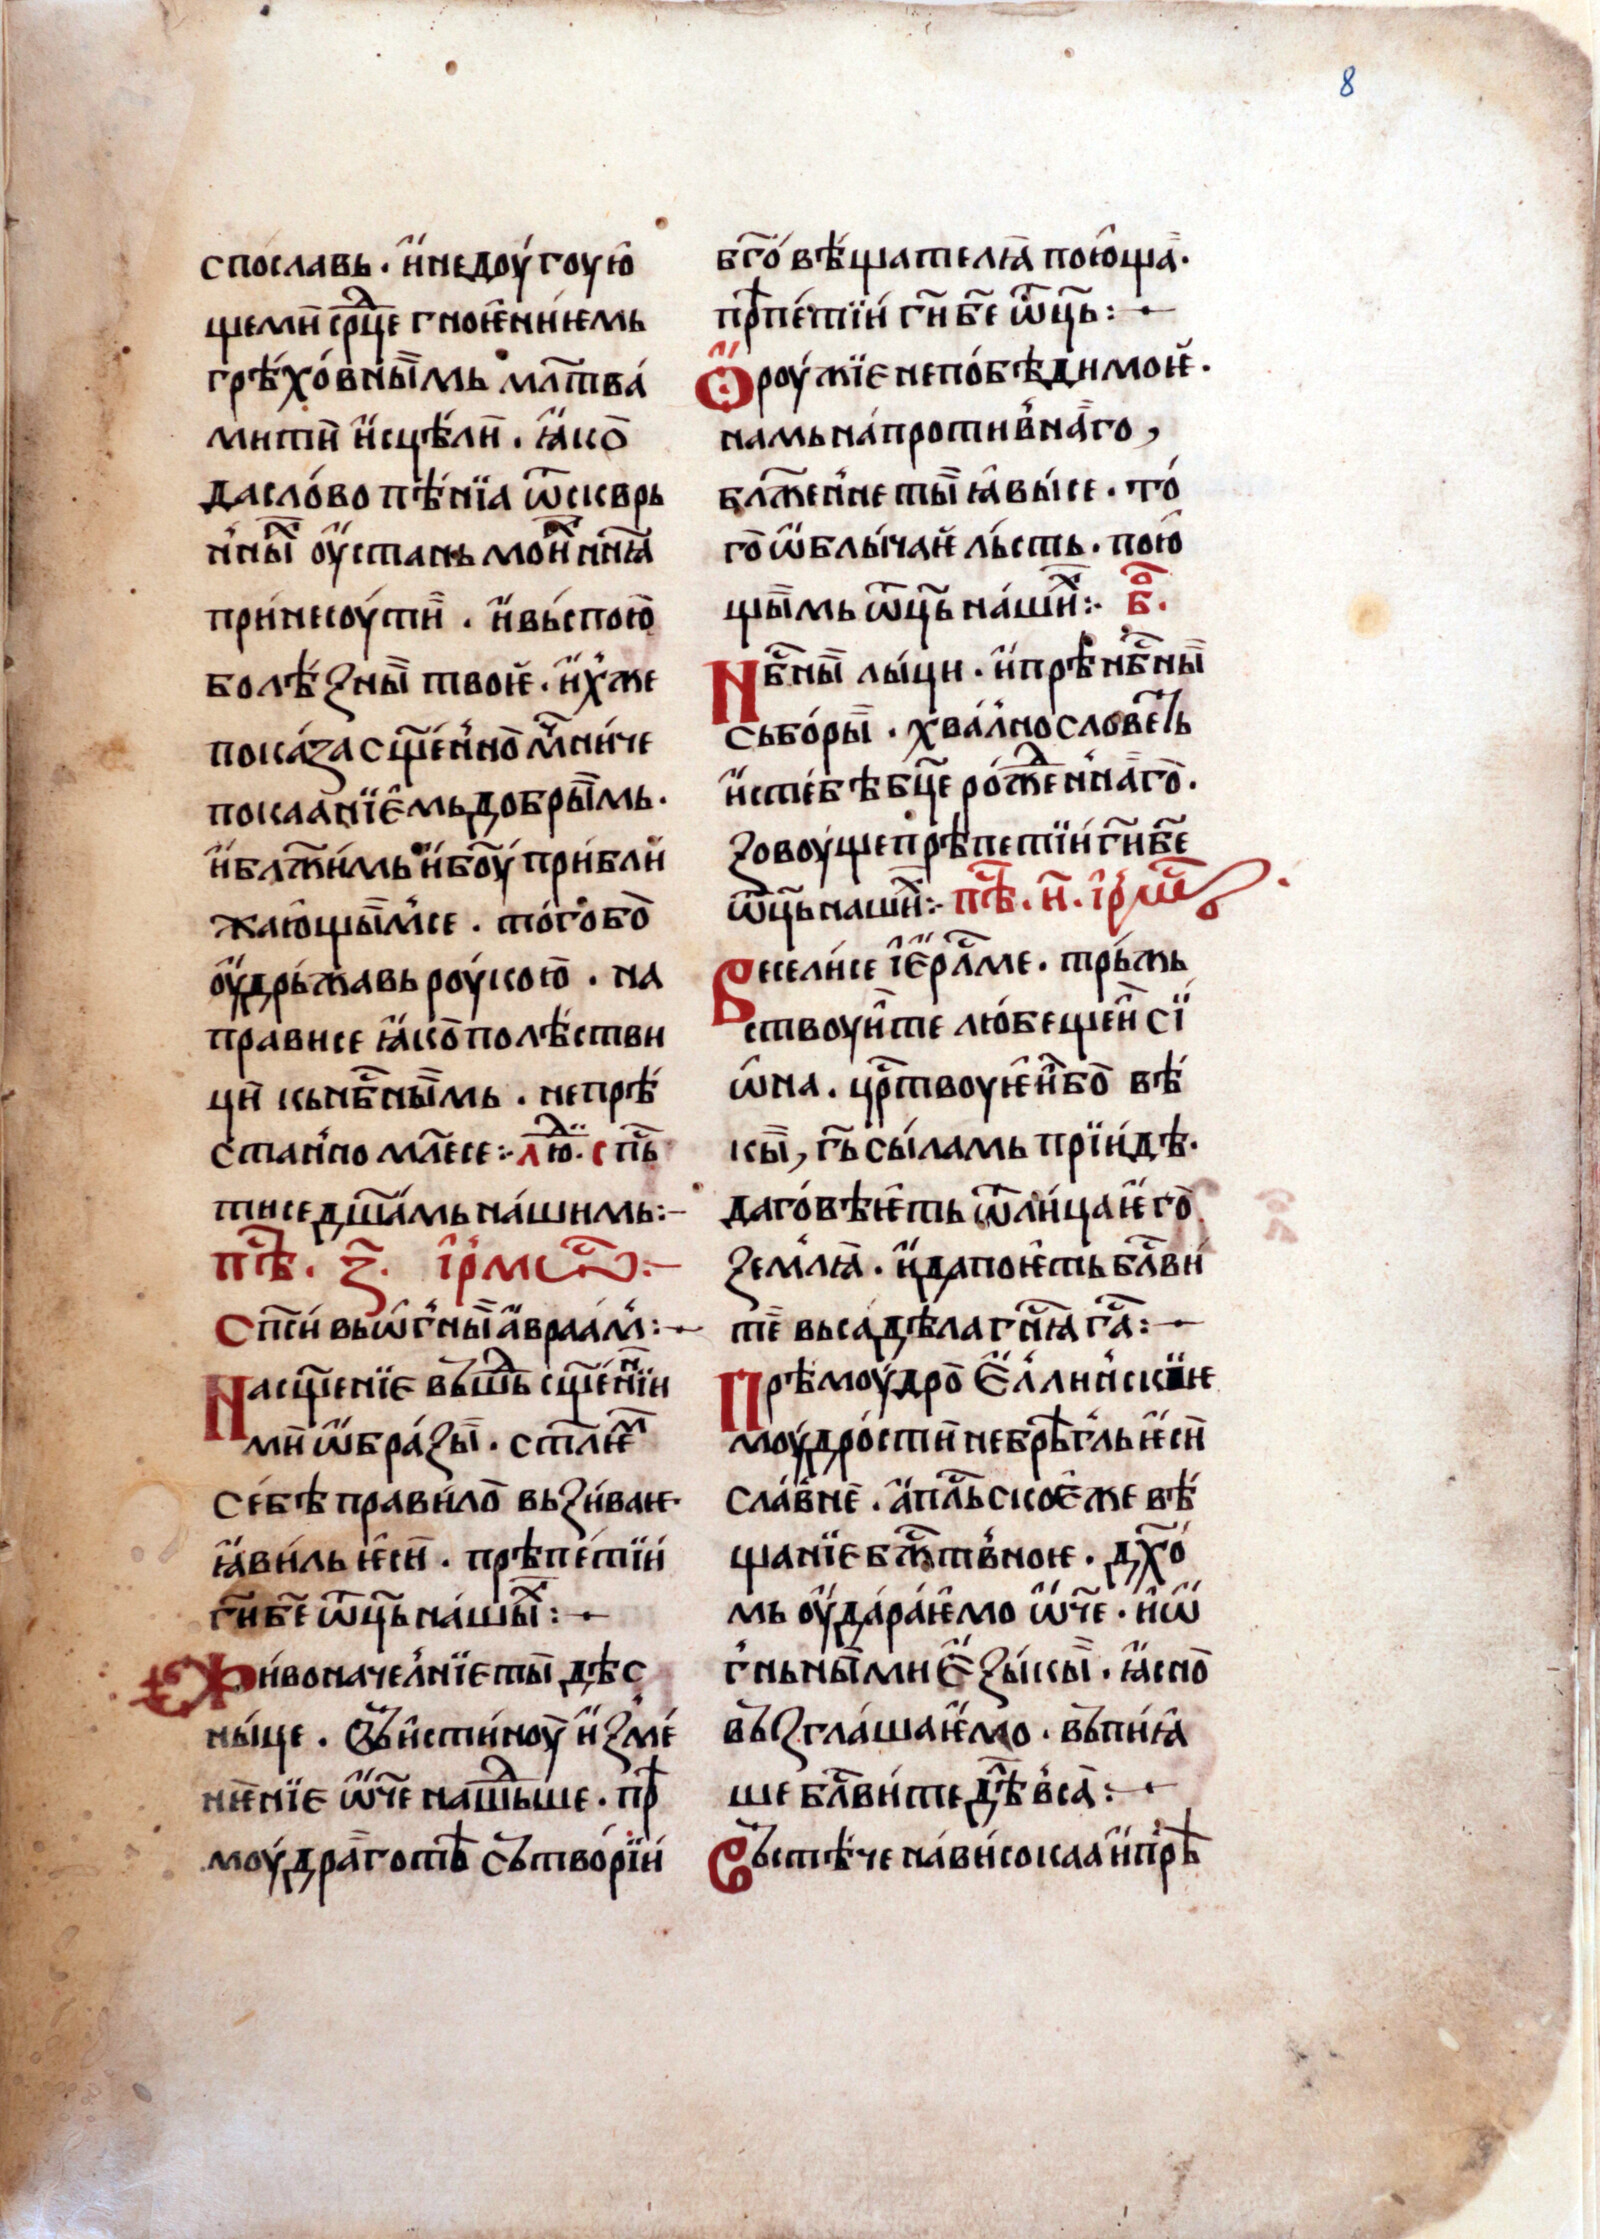 8
спославь · и҆ недоугоую
щеми срⷣце гноѥниѥмь
грѣховныимь млт҃ва
мити и҆сцѣли · ꙗ҆ко
да слово пѣнїа ѿ скврь
нныⷯ оустань моиⷯ нн҃ꙗ
принесоу ти · и҆ выспою
болѣзны твоѥ · и҆хже
показа сщ҃енно мⷱ҇ниче
покаанїємь добрыимь ·
и҆ блж҃имь и҆ бо҃у прибли
жающыимсе · того бо
оудрьжавь роукою · на
прависе ꙗ҆ко по лѣстви
ци кь нбⷭ҇ныимь · непрѣ
станно мл҃есе :· люⷣ · спⷭ҇ь
тисе дш҃амь нашимь :–
пⷭ҇ѣ · з҃ · і҆рмⷭ҇ѡ :–
Спⷭ҇и вь ѡ҆гны а҆враам :·–
Насщ҃енїє въшⷣь сщ҃еннⷩ҇їи
ми ѡ҆бразы · стл҃ѥⷨ
себѣ правило вьзиваѥ ·
ꙗ҆виль ѥ҆си · прѣпетїи
гⷭ҇и бе҃ ѿць нашыⷯ :·–
Живоначелнїе ты дѣс
ныце · Ѿ истиноу и҆зме
нѥнїє ѡ҆ч҃е нашⷣьше · прⷣ
моудраго тѣ сътворїи
бг҃овѣщателꙗ поюща ·
прⷣпетїи гⷭ҇и бе҃ ѿць :·–
Ѻ҆роужїе непобѣдимоѥ ·
намь на противнаго ,
блж҃енне ты ꙗ҆высе · то
го ѡ҆блычаѥ льсть · пою
щыимь ѿць нашиⷯ :· бⷪ҇ ·
Нбⷭ҇ны лыци · и҆ прѣнбⷭ҇ны
сьборы · хвалнословеть
и҆с тебѣ бц҃е рожⷣеннаго ·
зовоуще прѣпетїи гⷭ҇и бе҃
ѿць нашиⷯ :· пⷭ҇ѣ · и҃ · і҆рмⷭ҇ѡ ·
Веселисе і҆єрлⷭ҇ме · трьжь
ствоуите любещеи сї
ѡ҆на · црⷭ҇твоуѥи бо вѣ
кы , гⷭ҇ь сыламь прїидѣ ·
да говѣѥть ѿ лица ѥ҆го
землꙗ · и҆ да поѥть блⷭ҇ви
те вьса дѣла гнⷭ҇ꙗ гⷭ҇а :·–
Прѣмоудро є҆ллинскиѥ
моудрости небрѣгль ѥ҆си
славне · а҆плⷭ҇ьскоє же вѣ
щанїе бжⷭ҇твноѥ · дх҃о
мь оударꙗѥмо ѡ҆ч҃е · и҆ ѡ
гньныими є҆зыкы · ꙗ҆сно
въ зглашаѥмо · въпиꙗ
ше блⷭ҇вите дⷣѣ вса :·–
Състѣче на висока а҆ и прⷣѣ